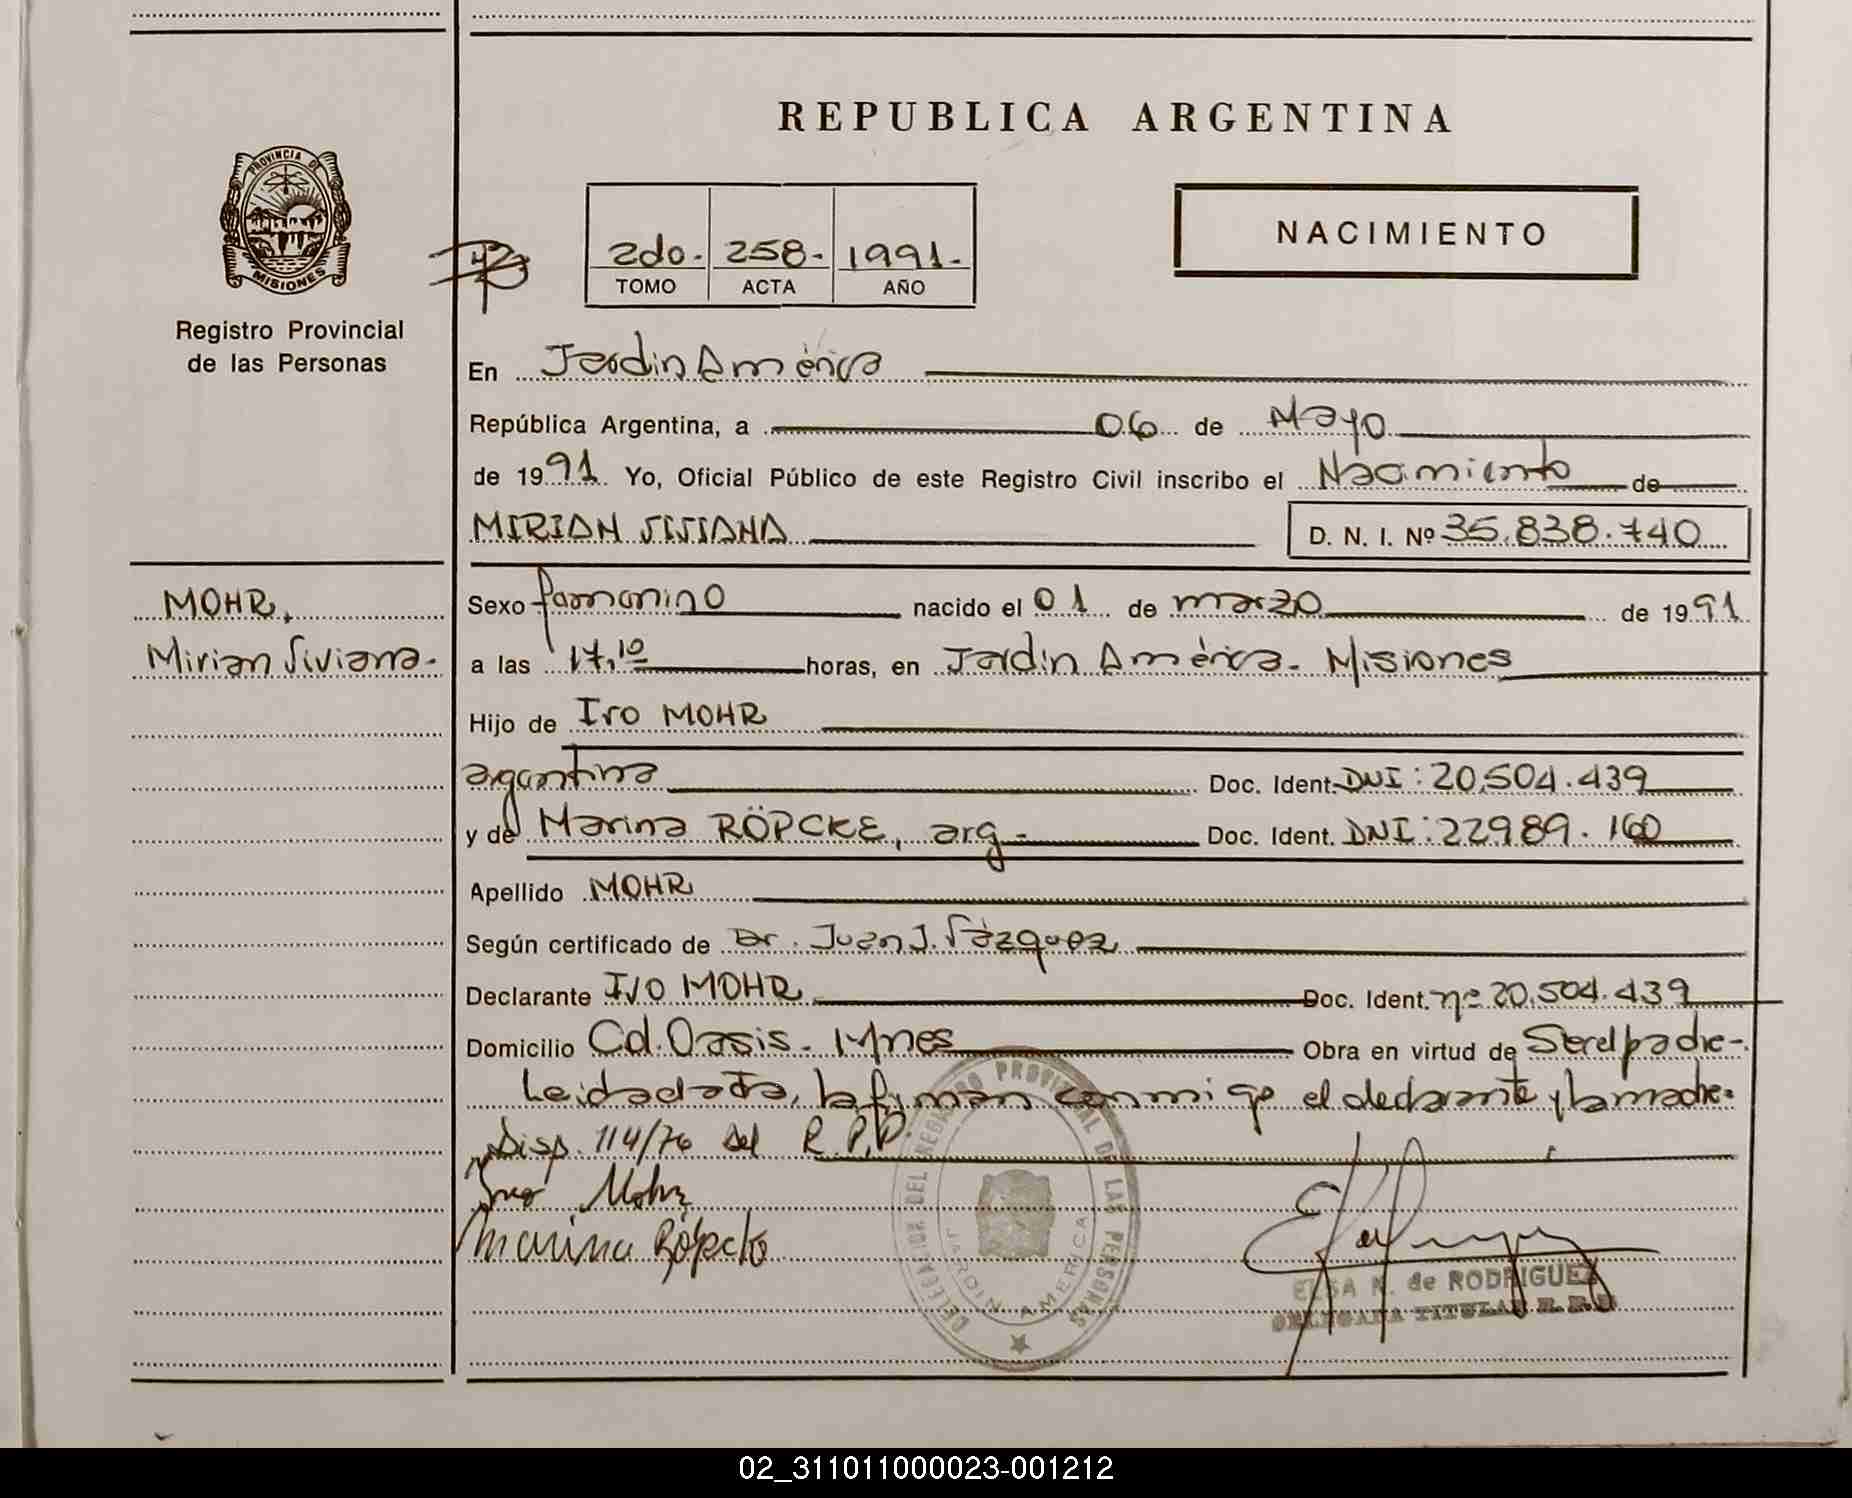 REPUBLICA ARGENTINA
PROVINCIA DE MISIONES
Registro Provincial
de las Personas
2do. 258. 1991.
TOMO ACTA AÑO
NACIMIENTO
En Jardin América
República Argentina, a 06 de Mayo
de 1991 Yo, Oficial Público de este Registro Civil inscribo el Nacimiento de
MIRIAN VIVIANA D. N. I. Nº 35.838.740
MOHR,
Mirian Viviana.
Sexo femenino nacido el 01 de marzo de 1991
a las 17,10 horas, en Jardin América. Misiones
Hijo de Ivo MOHR
argentina Doc. Ident. DNI: 20.504.439
y de Marina RÖPCKE, arg. Doc. Ident. DNI: 22989.160
Apellido MOHR
Según certificado de Dr. Juan J. Vázquez
Declarante IVO MOHR Doc. Ident. nº 20.504.439
Domicilio Cd. Oasis. Mnes Obra en virtud de Ser el padre.
Leida el acta, la firman conmigo el declarante y la madre.
Disp. 114/76 del R.P.P.
Ivo Mohr
Marina Röpcke
DELEGACION DEL REGISTRO PROVINCIAL DE LAS PERSONAS
JARDIN AMERICA
ELSA N. de RODRIGUEZ
DELEGADA TITULAR R. P. P.
02_311011000023-001212